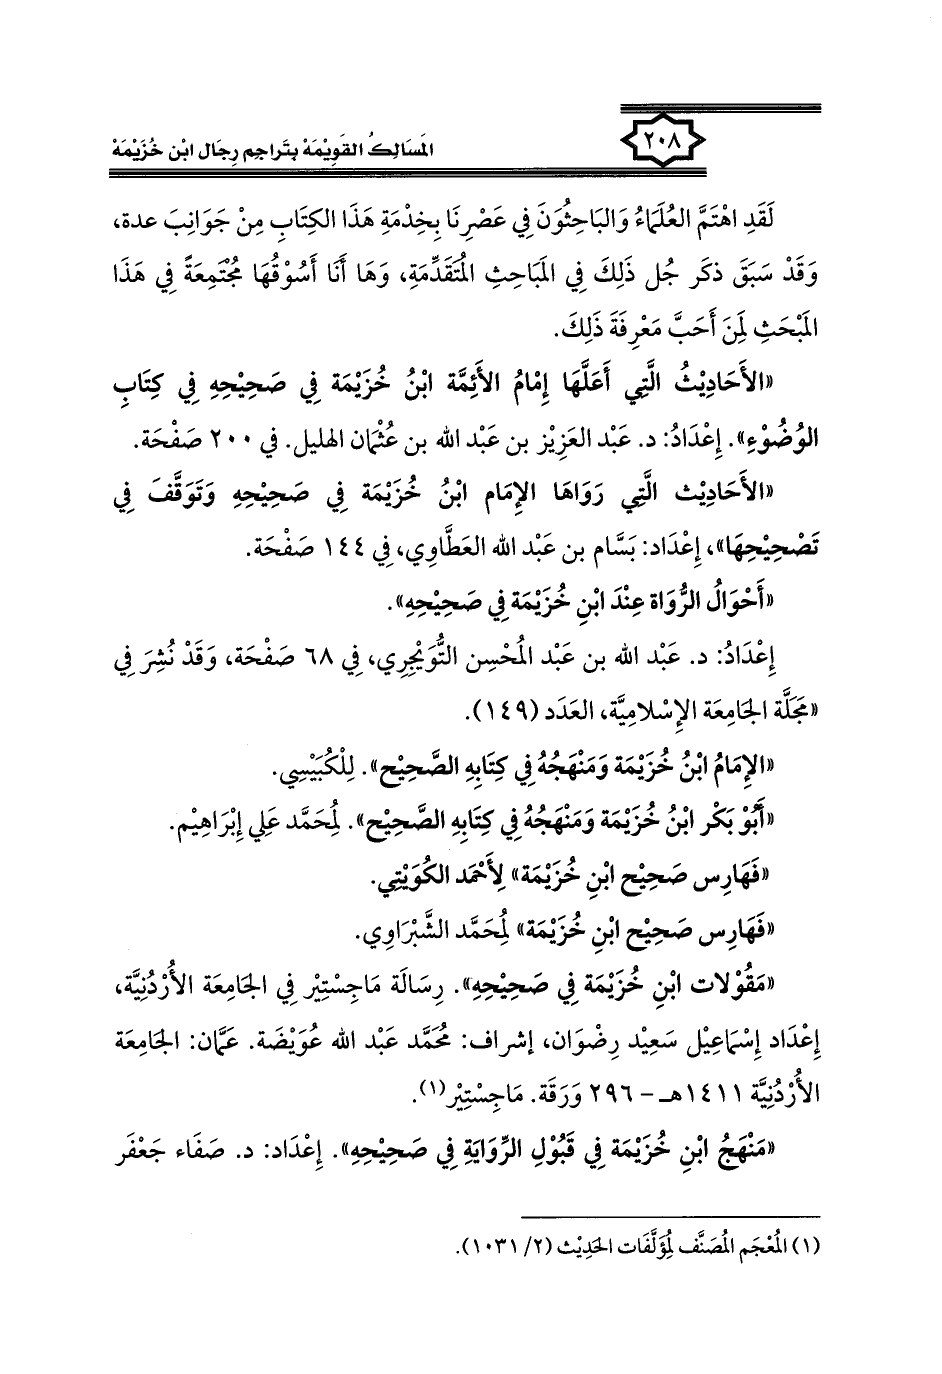 المَسَالِكُ القَوِيْمَة بِتَراجِم رِجَال ابْن خُزَيْمَة
٢٠٨
لَقَدِ اهْتَمَّ العُلَمَاءُ وَالبَاحِثُوْنَ فِي عَصْرِنَا بِخِدْمَةِ هَذَا الكِتَابِ مِنْ جَوَانِبَ عدة،
وَقَدْ سَبَقَ ذكَر جُل ذَلِكَ فِي المَبَاحِثِ المُتَقَدِّمَةِ، وَهَا أَنَا أَسُوْقُهَا مُجْتَمِعَةً فِي هَذَا
المَبْحَثِ لِمَنَ أَحَبَّ مَعْرِفَةَ ذَلِكَ.
«الأَحَادِيْثُ الَّتِي أَعَلَّهَا إِمْامُ الأَئِمَّة ابْنُ خُزَيْمَة فِي صَحِيْحِهِ فِي كِتَابِ
الوُضُوْءِ». إِعْدَادُ: د. عَبْد العَزِيْز بن عَبْد الله بن عُثْمَان الهليل. في ٢٠٠ صَفْحَة.
«الأَحَادِيْث الَّتِي رَوَاهَا الإِمَام ابْنُ خُزَيْمَة فِي صَحِيْحِهِ وَتَوَقَّفَ فِي
تَصْحِيْحِهَا»، إِعْدَاد: بَسَّام بن عَبْد الله العَطَّاوِي، فِي ١٤٤ صَفْحَة.
«أَحْوَالُ الرُّوَاة عِنْدَ ابْنِ خُزَيْمَة فِي صَحِيْحِهِ».
إِعْدَادُ: د. عَبْد الله بن عَبْد المُحْسِن التُّوَيْجِرِي، فِي ٦٨ صَفْحَة، وَقَدْ نُشِرَ فِي
«مَجَلَّة الجَامِعَة الإِسْلامِيَّة، العَدَد (١٤٩).
«الإِمَامُ ابْنُ خُزَيْمَة وَمَنْهَجُهُ فِي كِتَابِهِ الصَّحِيْحِ». لِلْكُبَيْسِي.
«أَبُوْ بَكْر ابْنُ خُزَيْمَة وَمَنْهَجُهُ فِي كِتَابِهِ الصَّحِيْحِ». لِمُحَمَّد عَلِي إِبْرَاهِيْم.
«فَهَارِس صَحِيْح ابْنِ خُزَيْمَة» لِأَحْمَد الكُوَيْتِي.
«فَهَارِس صَحِيْح ابْنِ خُزَيْمَة» لِمُحَمَّد الشَّبْرَاوِي.
«مَقُوْلات ابْنِ خُزَيْمَة فِي صَحِيْحِهِ». رِسَالَة مَاجِسْتِيْر فِي الجَامِعَة الأُرْدُنِيَّة،
إِعْدَاد إِسْمَاعِيْل سَعِيْد رِضْوَان، إشراف: مُحَمَّد عَبْد الله عُوَيْضَة. عَمَّان: الجَامِعَة
الأُرْدُنِيَّة ١٤١١هـ - ٢٩٦ وَرَقَة. مَاجِسْتِيْر(١).
«مَنْهَجُ ابْنِ خُزَيْمَة فِي قَبُوْلِ الرِّوَايَةِ فِي صَحِيْحِهِ». إِعْدَاد: د. صَفَاء جَعْفَر
(١) المُعْجَم المُصَنَّف لِمُؤَلَّفَات الحَدِيْث (٢/ ١٠٣١).